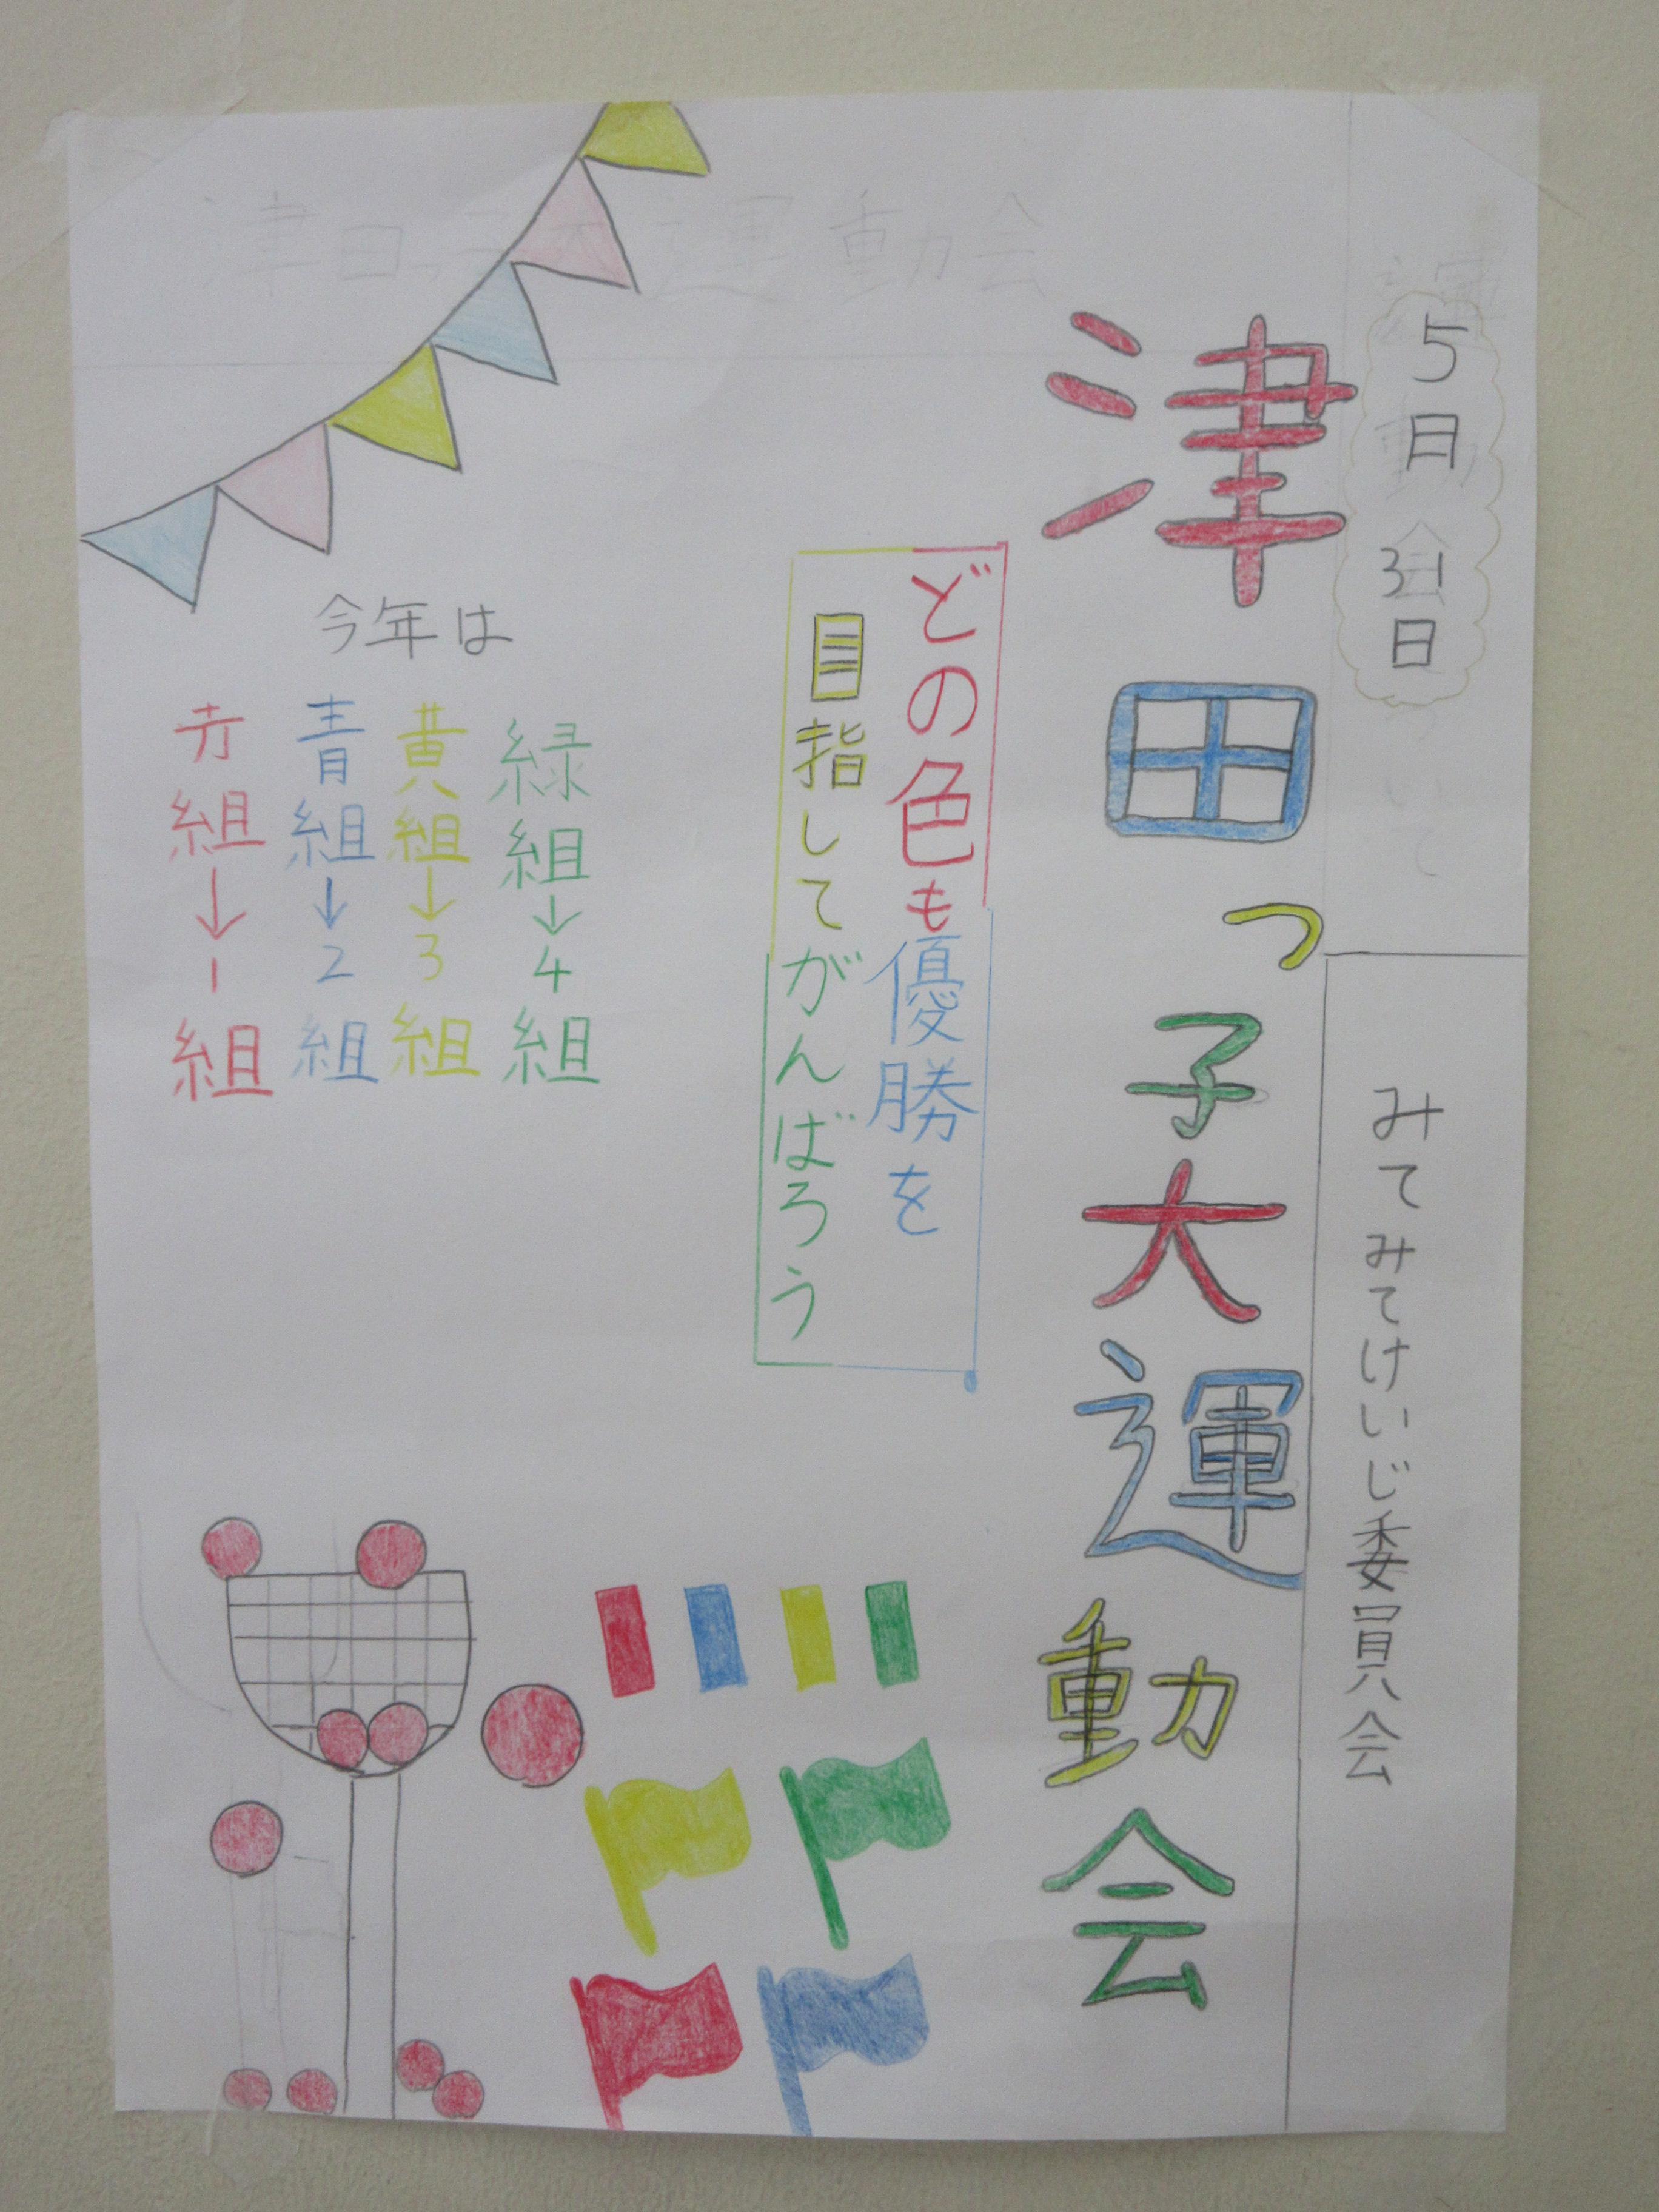 5月31日
みてみてけいじ委員会
津田っ子大運動会
どの色も優勝を
目指してがんばろう
今年は
緑組→4組
黄組→3組
青組→2組
赤組→1組